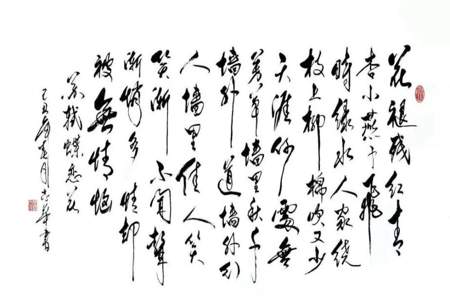 花褪残红青
杏小燕子飞
时绿水人家绕
枝上柳棉吹又少
天涯何處無
芳草墙里秋千
墙外道墙外行
人墙里佳人笑
笑渐不闻聲
渐悄多情却
被無情恼
苏轼蝶恋花
己丑年春月 书